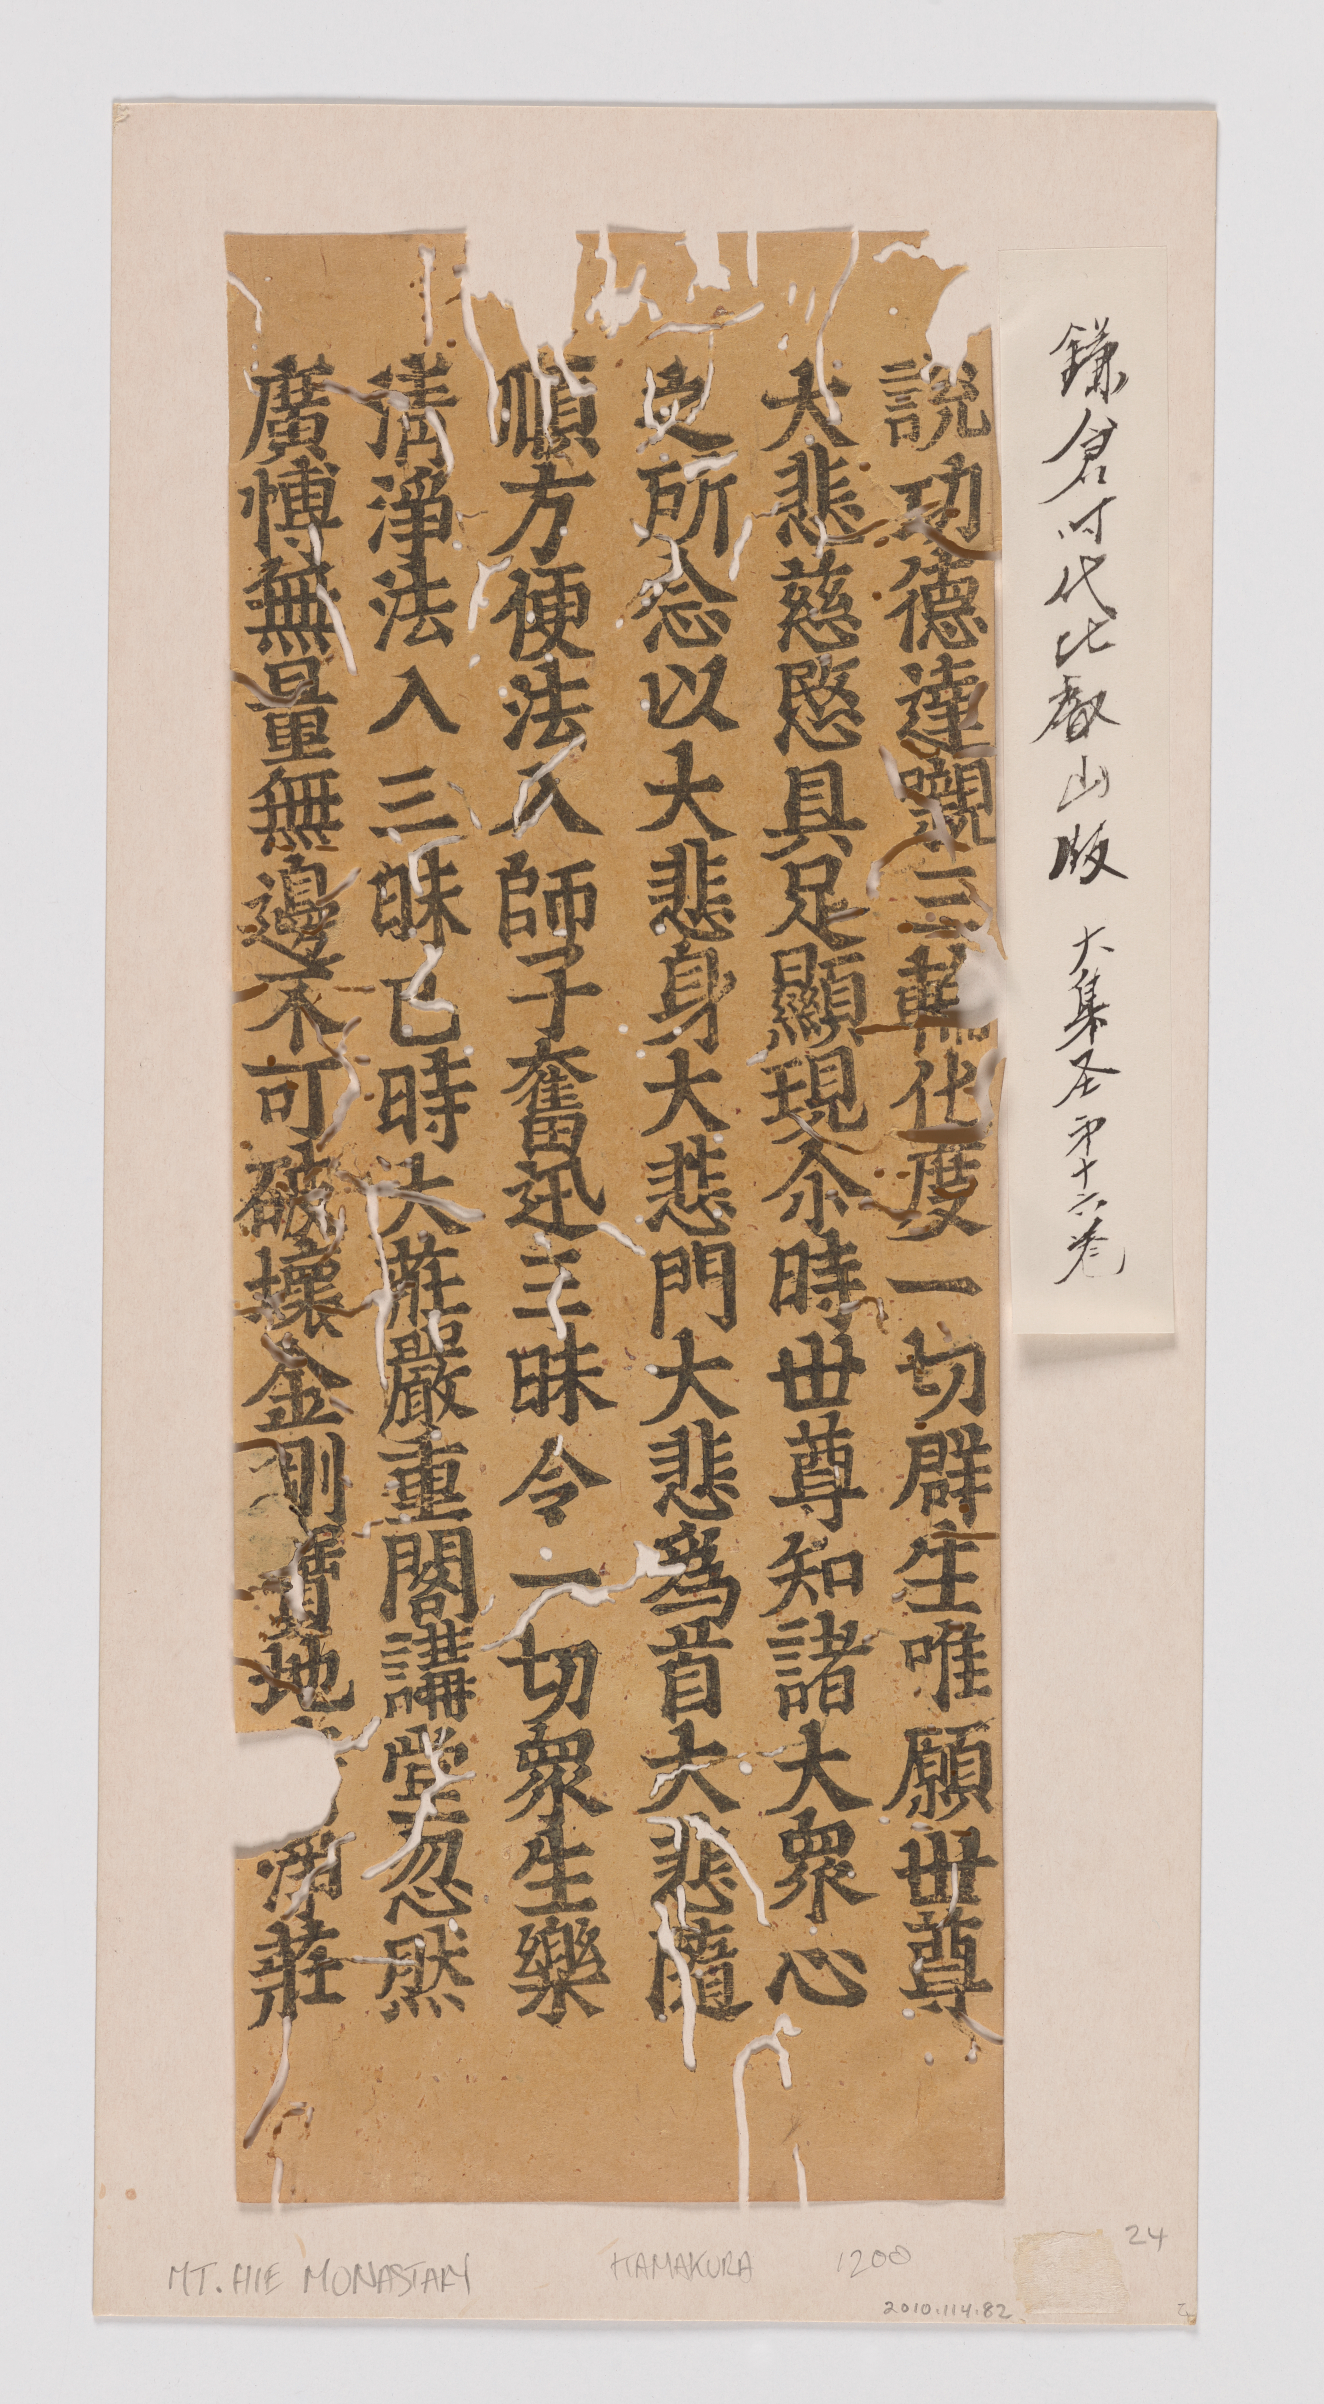 鎌倉时代比叡山版 大集圣㐧十六卷
説功德達嚫三輪化度一切群生唯願世尊
大悲慈愍具足顯現尒時世尊知諸大衆心
之所念以大悲身大悲門大悲爲首大悲隨
順方便法入師子奮迅三昧令一切衆生樂
清淨法入三昧已時大莊嚴重閣講堂忽然
廣愽無量無邊不可破壞金剛寶地淨莊
24
MT. HIE MONASTARY KAMAKURA 1200
2010.114.82